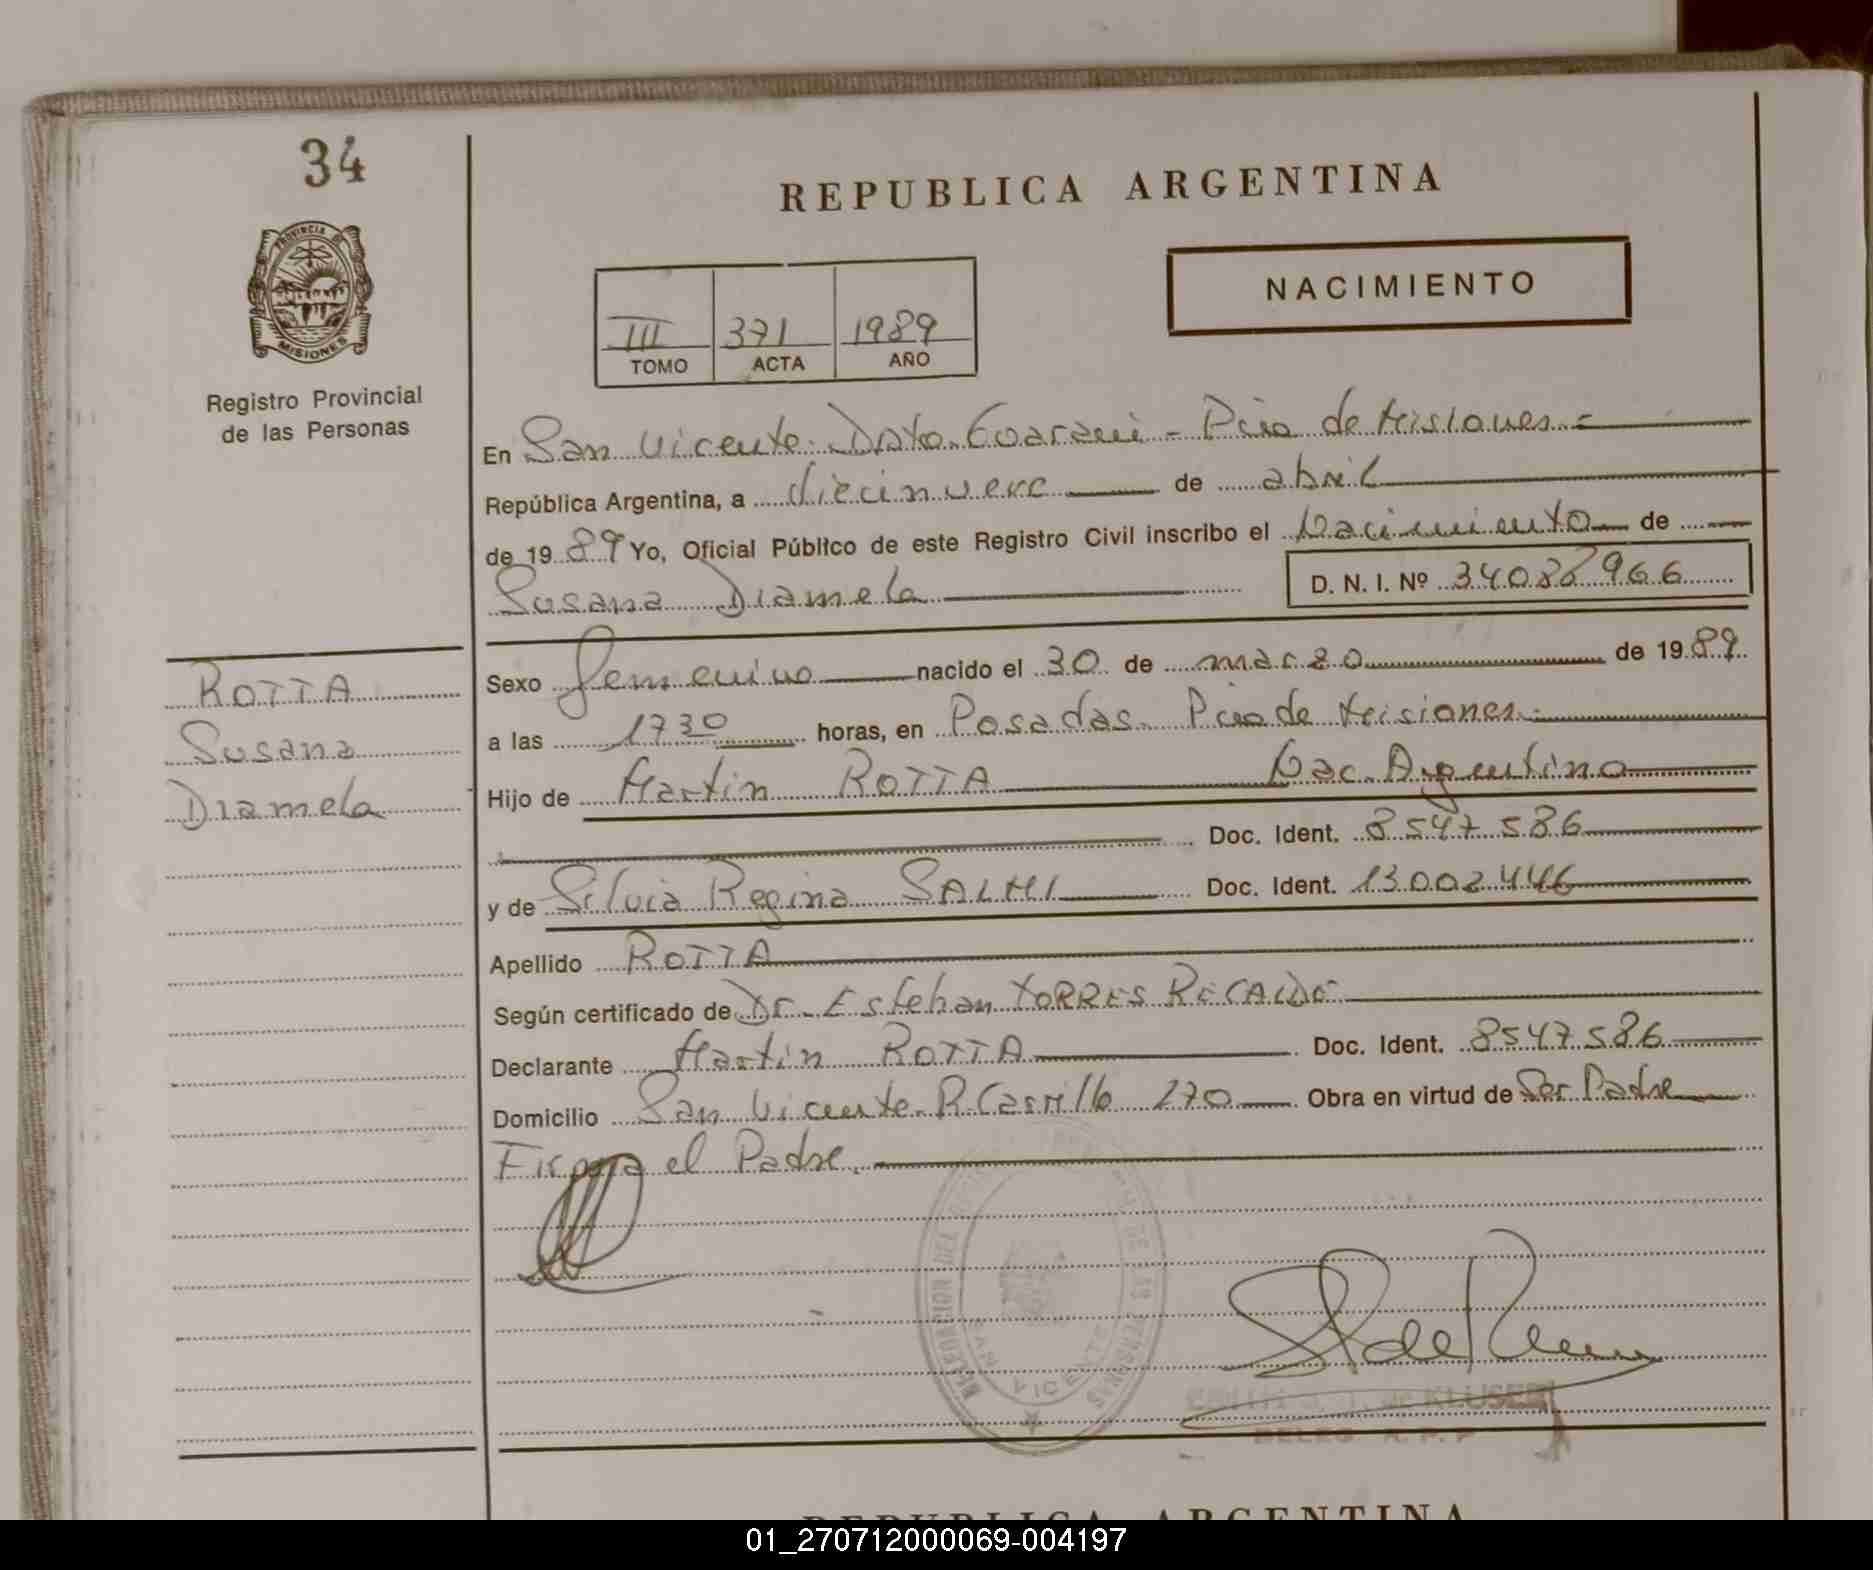 34
REPUBLICA ARGENTINA
PROVINCIA DE
MISIONES
Registro Provincial
de las Personas
NACIMIENTO
III 371 1989
TOMO ACTA AÑO
En San Vicente Dpto. Guarani - Pcia de Misiones =
República Argentina, a diecinueve de abril
de 1989 Yo, Oficial Público de este Registro Civil inscribo el Nacimiento de
Susana Diamela D. N. I. Nº 34088966
ROTTA
Susana
Diamela
Sexo femenino nacido el 30 de marzo de 1989
a las 1730 horas, en Posadas. Pcia de Misiones.
Hijo de Martin ROTTA Nac. Argentino
Doc. Ident. 8547586
y de Silvia Regina SALMI Doc. Ident. 13002446
Apellido ROTTA
Según certificado de Dr. Esteban TORRES RECALDE
Declarante Martin ROTTA Doc. Ident. 8547586
Domicilio San Vicente. R. Carrillo 270 Obra en virtud de Ser Padre
Firma el Padre.
DELEGACION DEL DE LAS PERSONAS
SAN VICENTE
de KLUSER
DELEG. R. P. P
REPUBLICA ARGENTINA
01_270712000069-004197